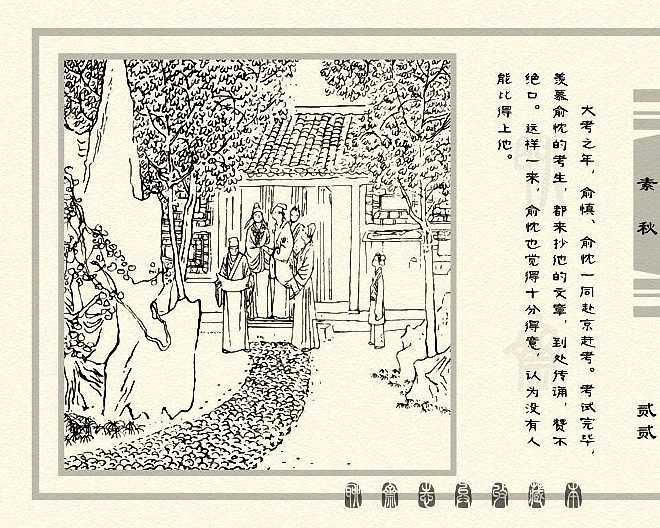 大考之年，俞慎、俞忱一同赴京赶考。考试完毕，
羡慕俞忱的考生，都来抄他的文章，到处传诵，赞不
绝口。这样一来，俞忱也觉得十分得意，认为没有人
能比得上他。
素秋
贰贰
聊斋志异收藏本